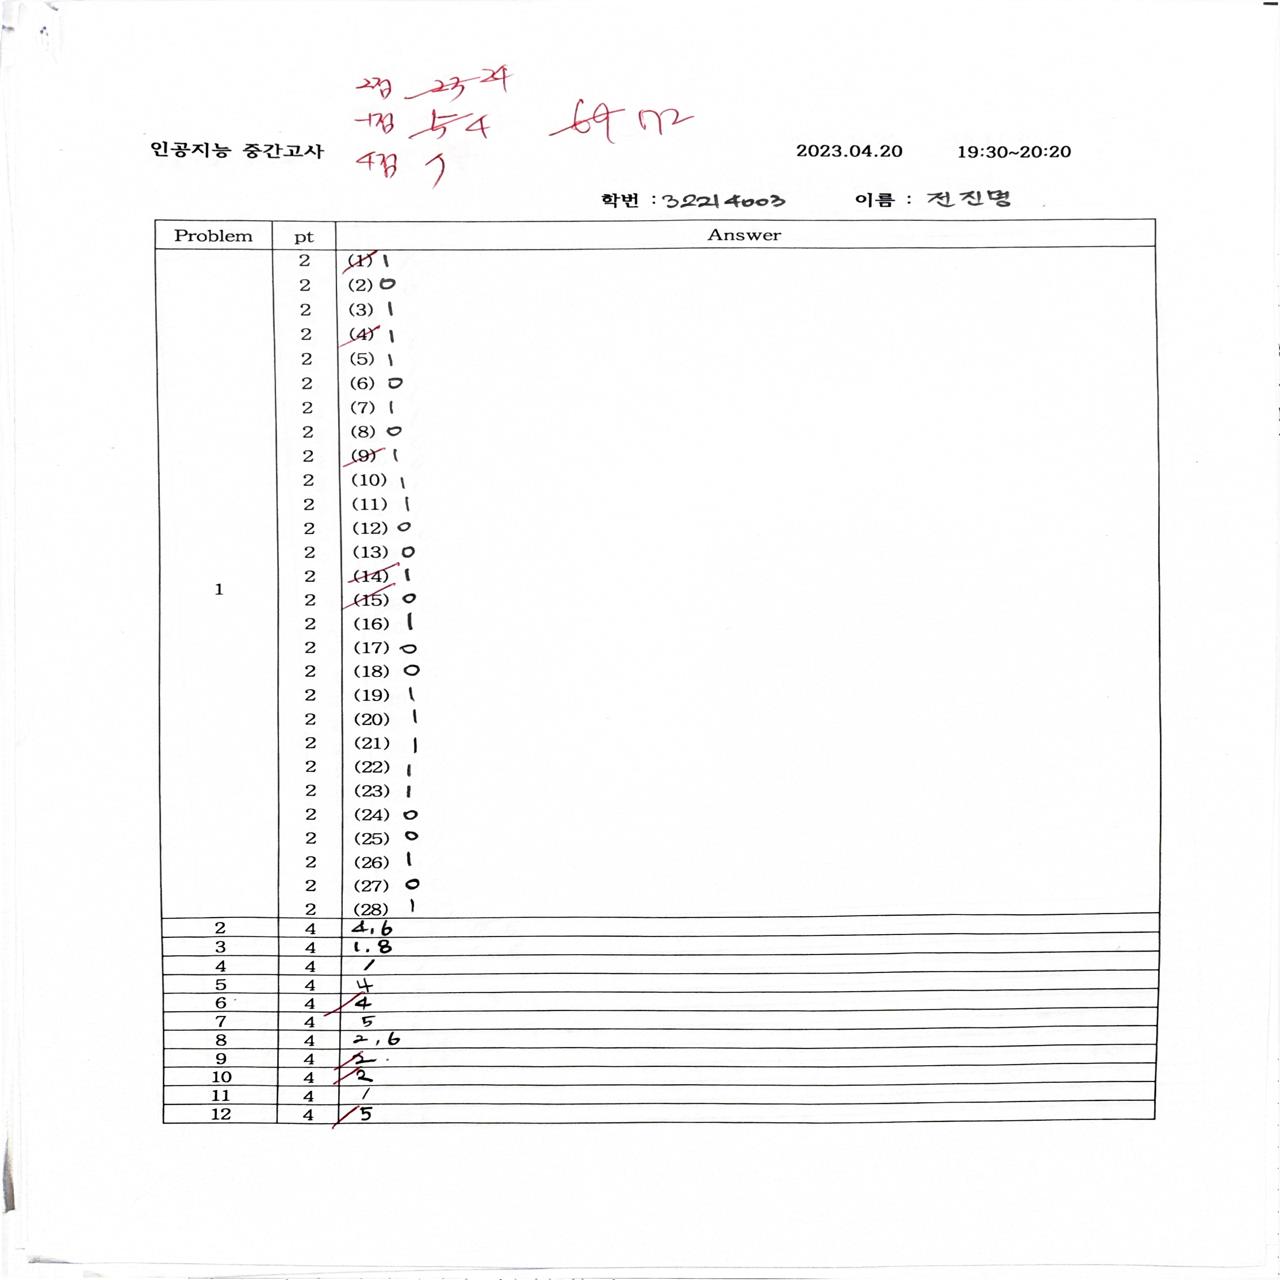 2점 23 24
-1점 5 4 69 72
인공지능 중간고사 4점 7 2023.04.20 19:30~20:20
학번 : 32214003 이름 : 전진명
Problem pt Answer
2 (1) 1
2 (2) 0
2 (3) 1
2 (4) 1
2 (5) 1
2 (6) 0
2 (7) 1
2 (8) 0
2 (9) 1
2 (10) 1
2 (11) 1
2 (12) 0
2 (13) 0
2 (14) 1
1 2 (15) 0
2 (16) 1
2 (17) 0
2 (18) 0
2 (19) 1
2 (20) 1
2 (21) 1
2 (22) 1
2 (23) 1
2 (24) 0
2 (25) 0
2 (26) 1
2 (27) 0
2 (28) 1
2 4 4,6
3 4 1.8
4 4 1
5 4 4
6 4 4
7 4 5
8 4 2,6
9 4 2
10 4 2
11 4 1
12 4 5